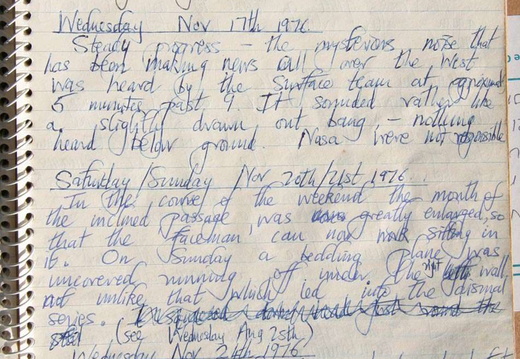 Wednesday Nov 17th 1976
Steady progress – the mysterious noise that
has been making news all over the West
was heard by the Surface team at
5 minutes past 9. It sounded rather like
a slightly drawn out bang, – nothing
heard below ground. Nasa were not responsible
Saturday/Sunday Nov 20th/21st 1976.
In the course of the weekend the mouth of
the inclined passage was greatly enlarged, so
that the faceman can now work sitting in
it. On Sunday a bedding plane was
uncovered running off under the right wall
not unlike that which led into the dismal
series.
(see Wednesday Aug 25th)
Wednesday Nov 24th 1976